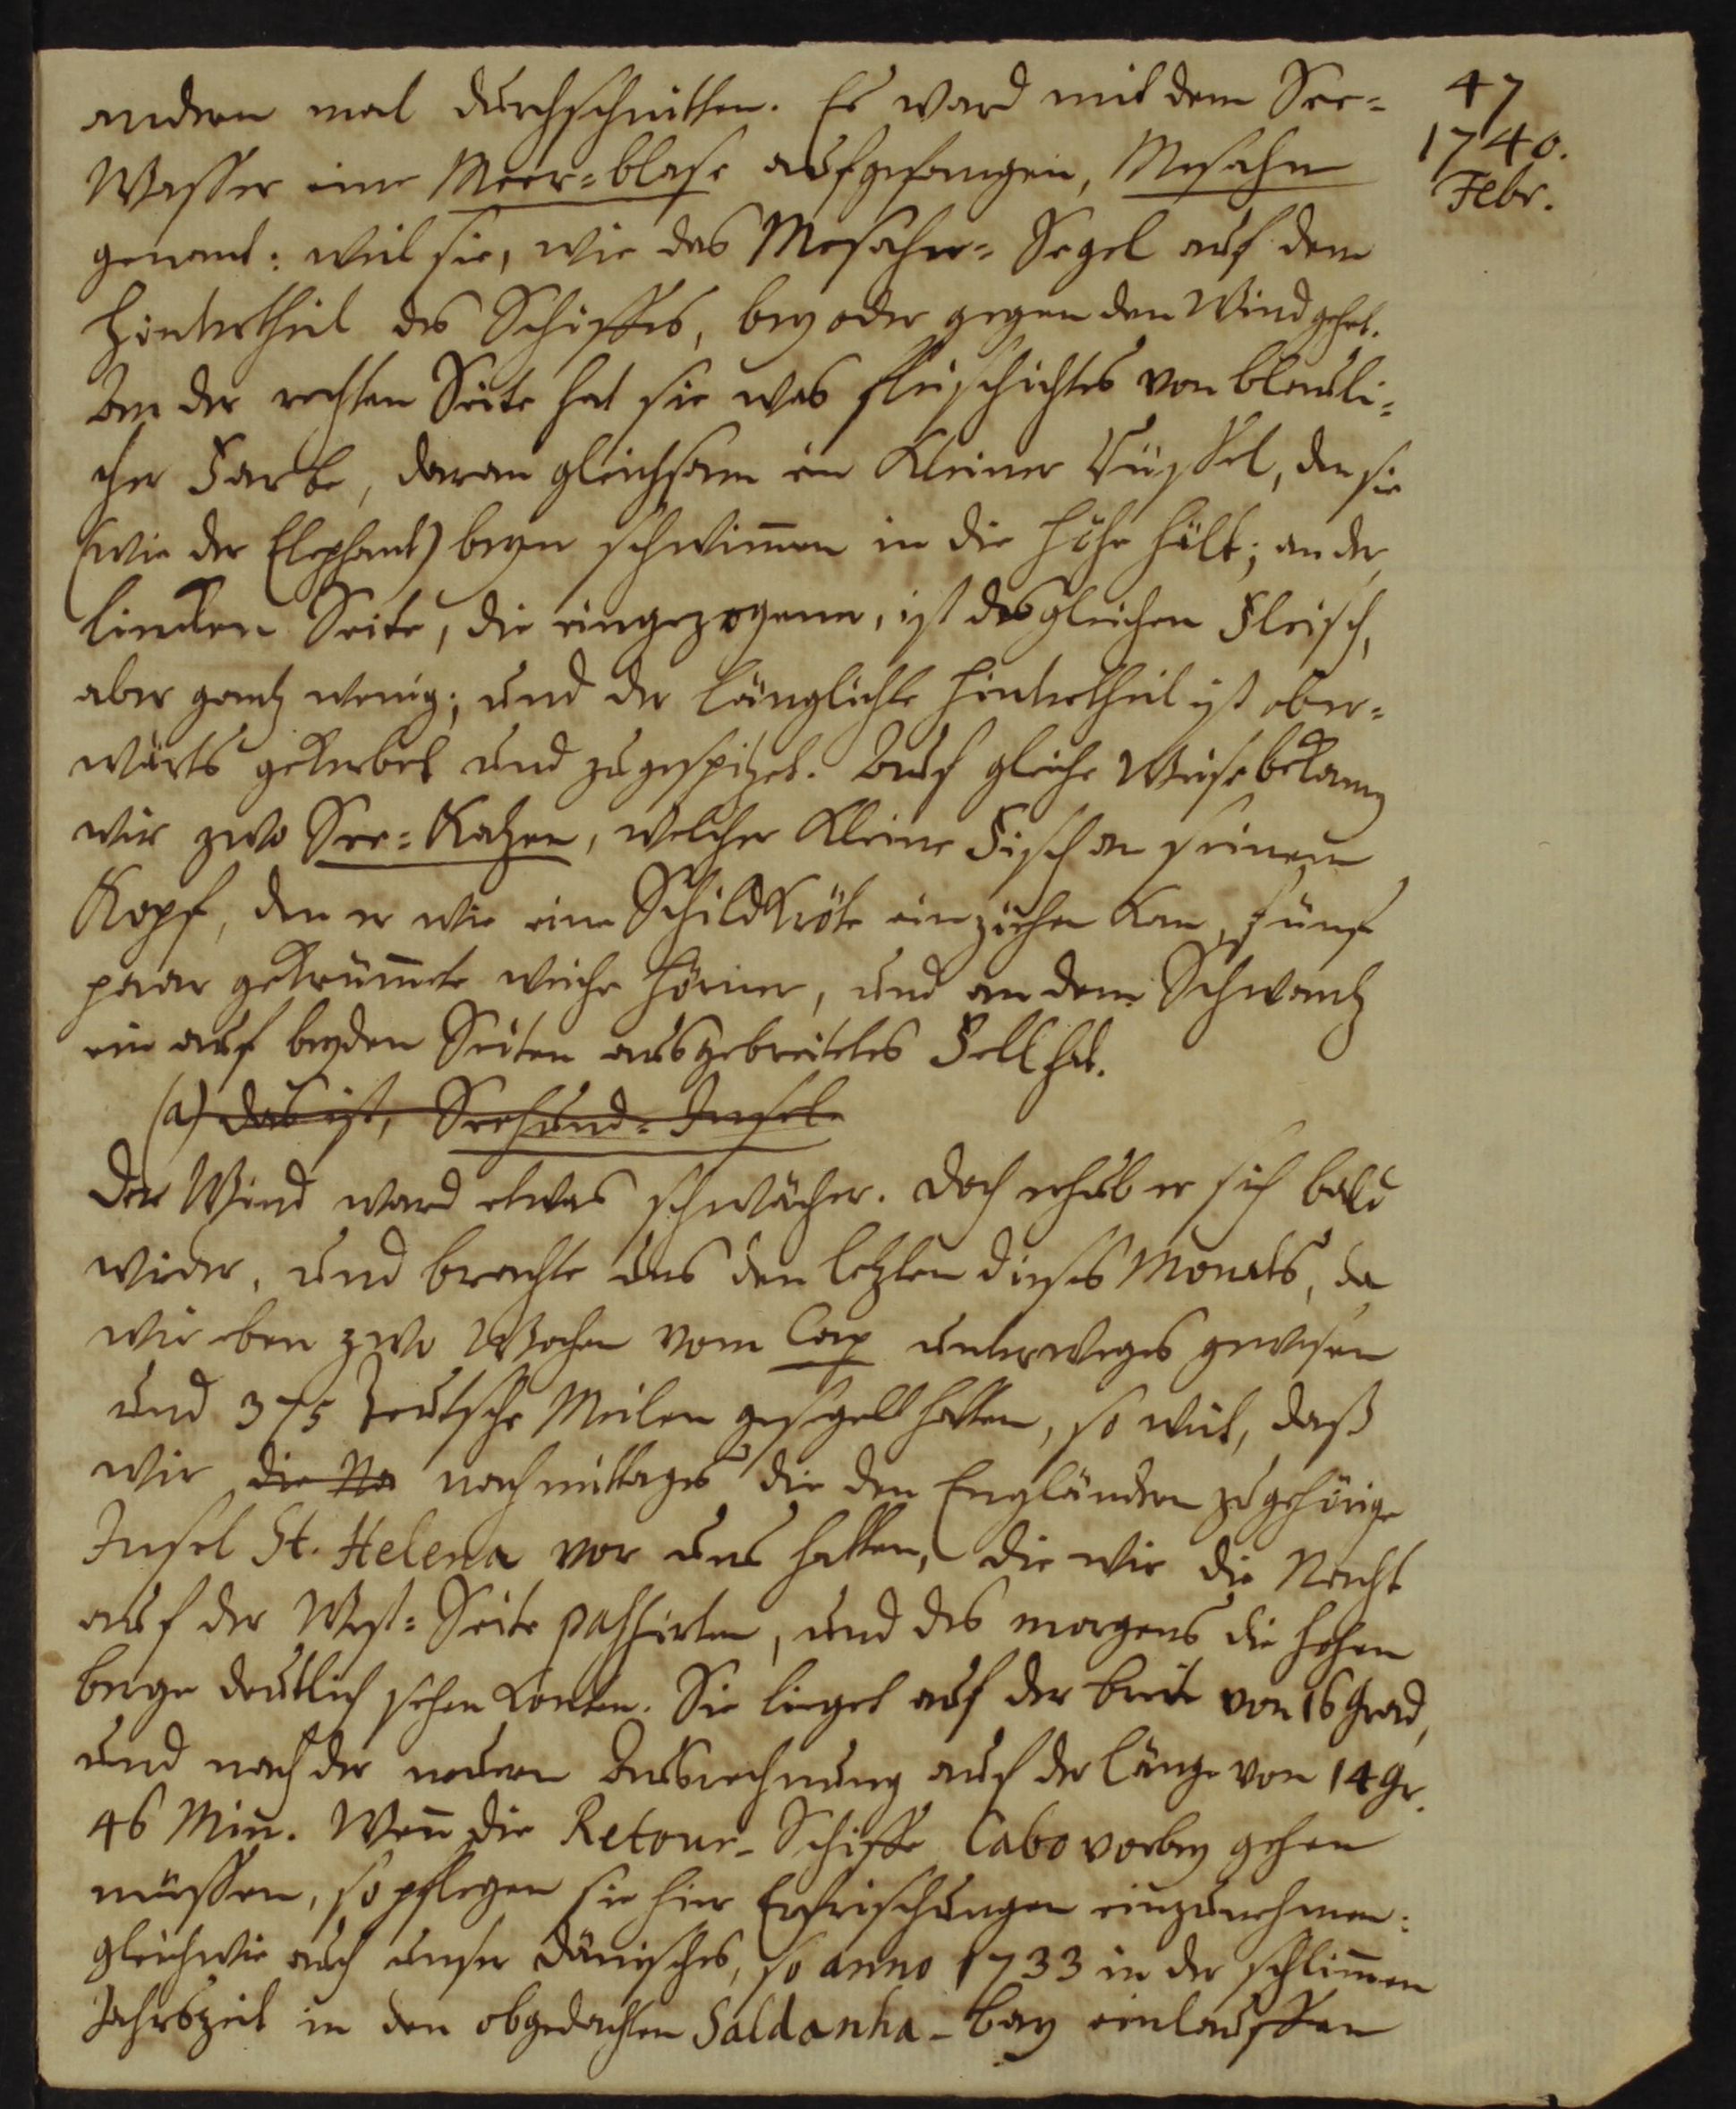 andern mal durchschnitten. Es ward mit dem See-
Wasser eine Meer-blase aufgefangen, Mesahn
genant: weil sie, wie das Mesahn-Segel auf dem
Hintertheil des Schiffes, bey oder gegen den Wind gehet.
An der rechten Seite hat sie was fleischichtes von bleuli-
cher Farbe, daran gleichsam ein kleiner Rüssel, den sie
(wie der Elephant) beym schwim̄en in die Höhe hält; an der
lincken Seite, die eingezogener, ist desgleichen Fleisch,
aber gantz wenig; und der länglichte Hintertheil ist ober-
wärts gekerbet und zugespitzet. Auf gleiche Weise bekamen
wir zwo See-Katzen, welcher kleine Fisch an seinem
Kopf, den er wie eine Schildkröte einziehen kan, fünf
paar gekrüm̄te weiche Hörner, und an dem Schwantz
ein auf beyden Seiten ausgebreitetes Fell hat.
(a) das ist, Seehund-Insel.
Der Wind ward etwas schwächer. Doch erhub er sich bald
wieder, und brachte uns den letzten dieses Monats, da
wir eben zwo Wochen vom Cap unterweges gewesen
und 375 Teutsche Meilen gesegelt hatten, so weit, daß
wir die Na nachmittages die den Engländern zugehörige
Insel St. Helena vor uns hatten, die wir die Nacht
auf der West-Seite passirten, und des morgens die hohen
berge deutlich sehen konten. Sie lieget auf der breite von 16 Grad,
und nach der neuern Ausrechnung auf der Länge von 14 Gr.
46 Min̄. Wen̄ die Retour-Schiffe Cabo vorbey gehen
müssen, so pflegen sie hier Erfrischungen einzunehmen:
gleichwie auch unser Dänisches, so anno 1733 in der schlim̄en
Jahrszeit in den obgedachten Saldanha-bay einlauffen
47
1740.
Febr.